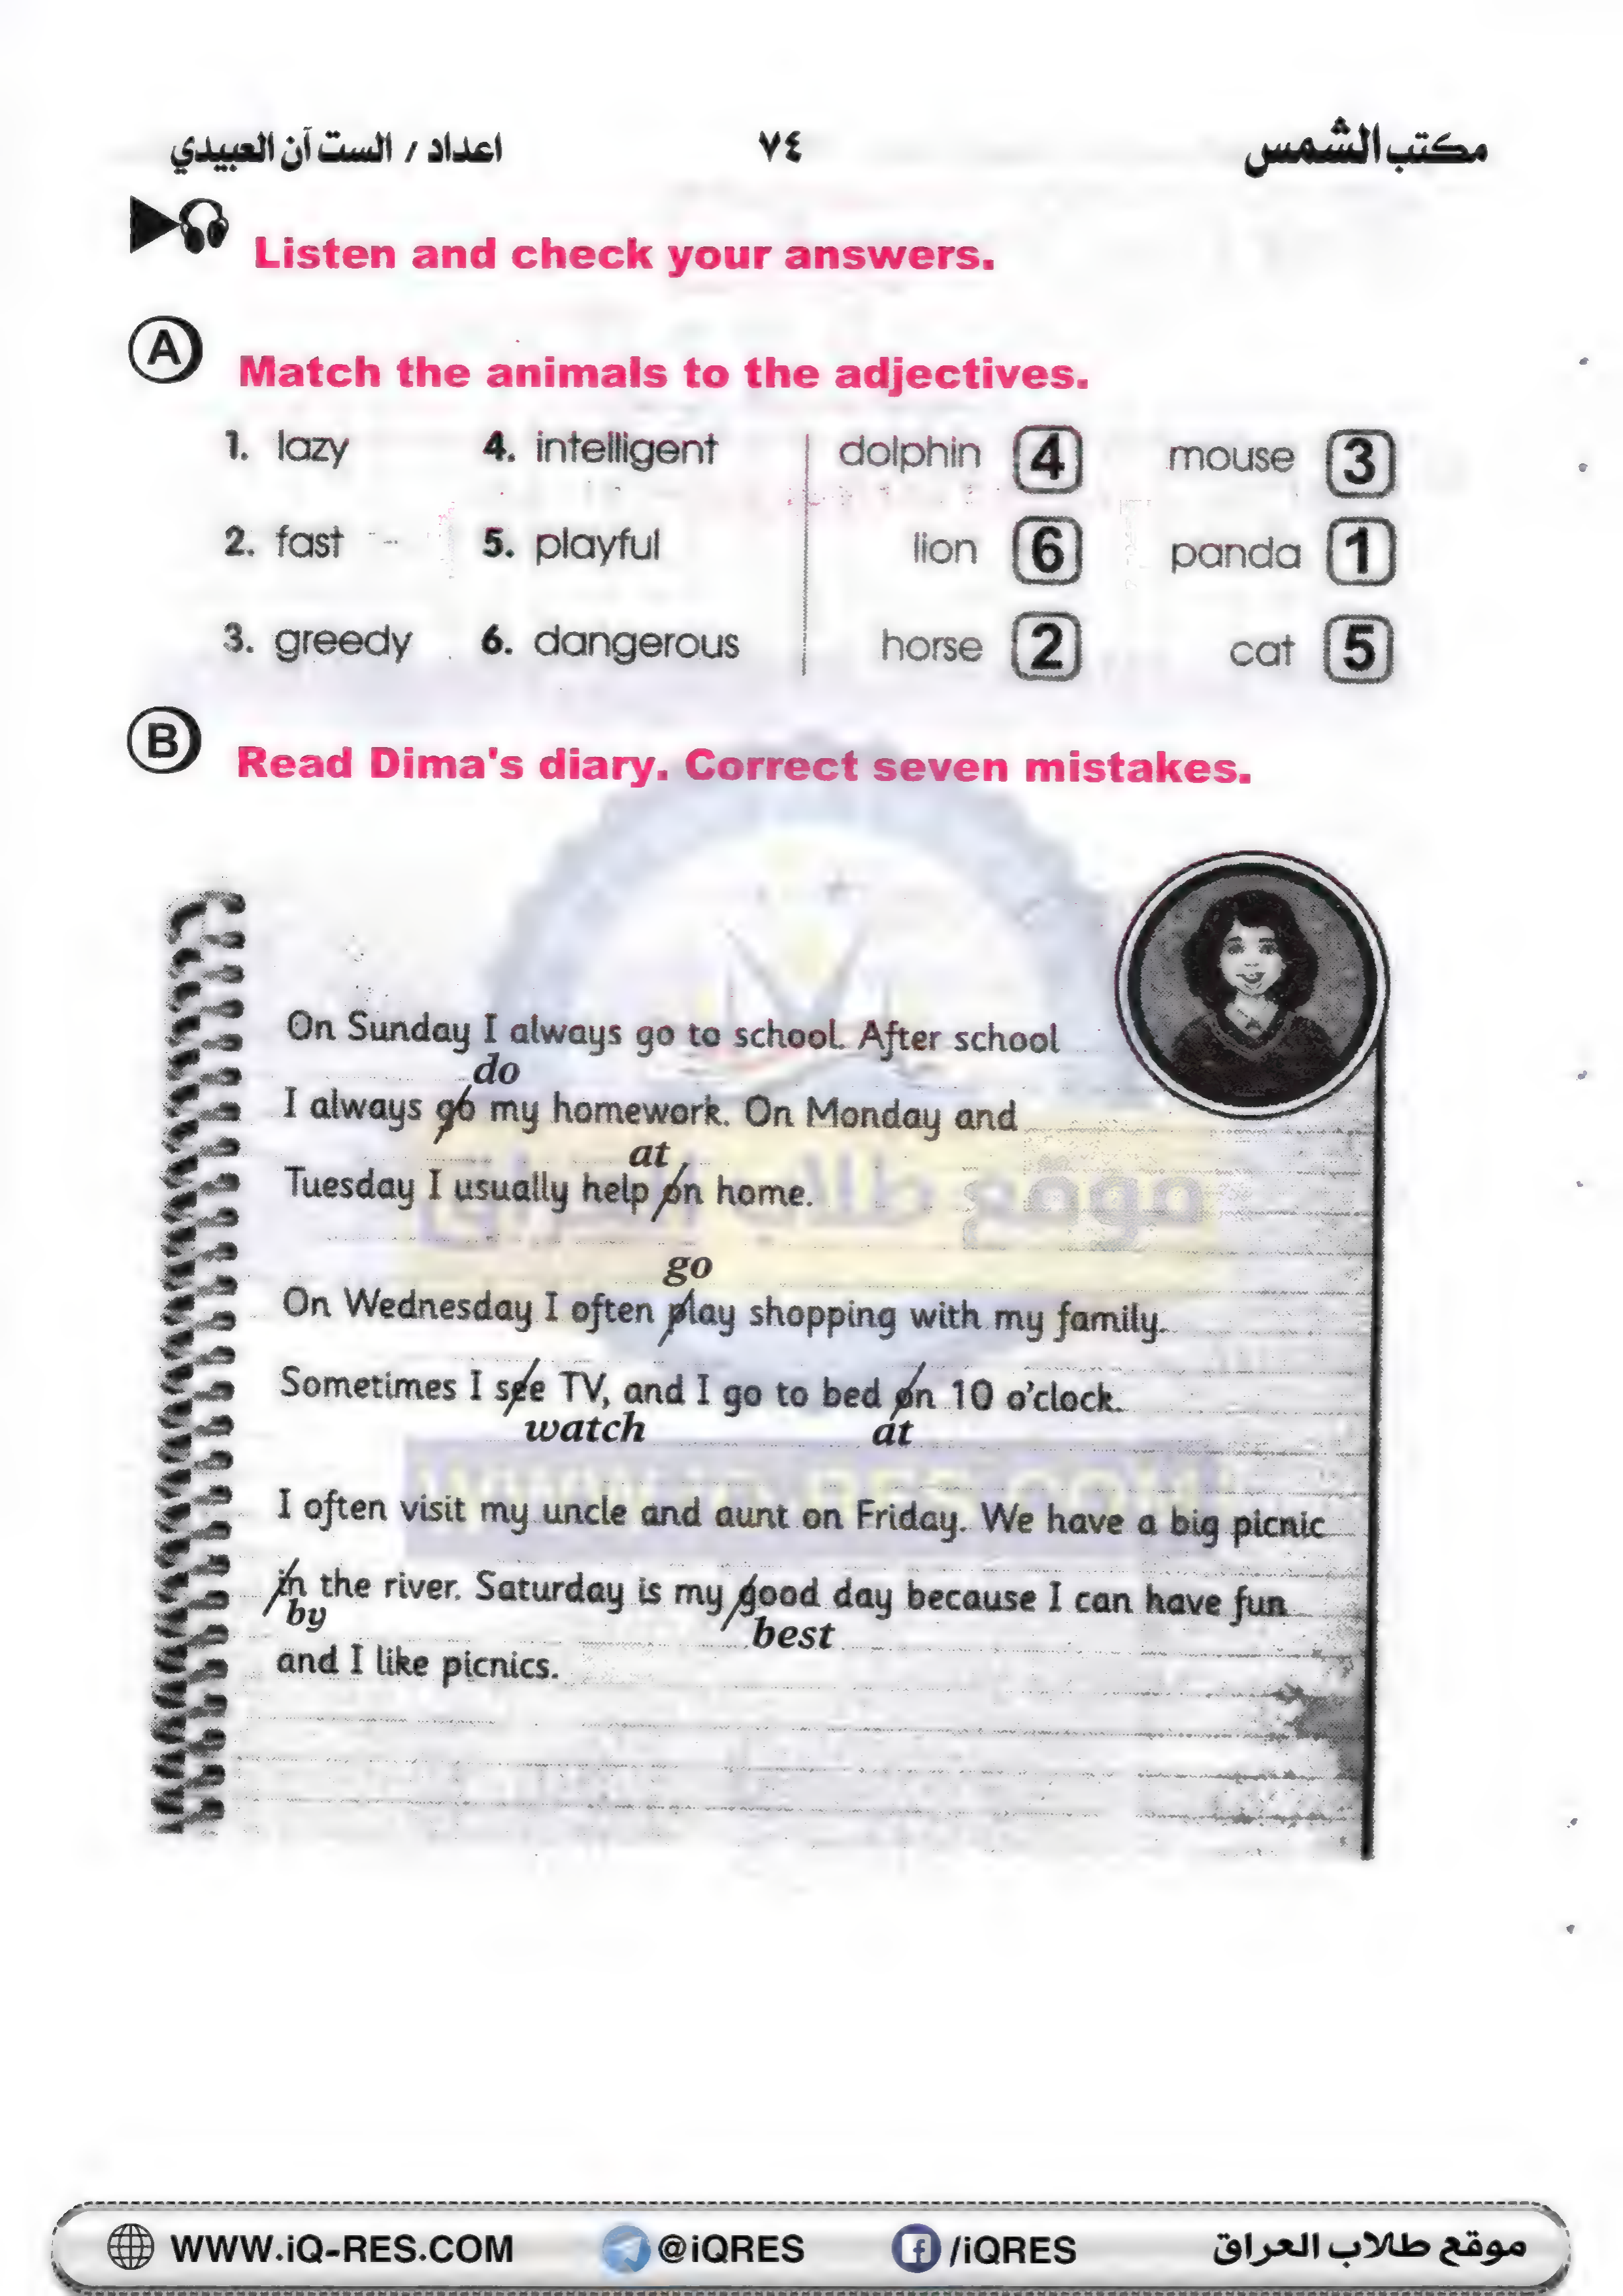 مكتب الشمس ٧٤ اعداد / الست آن العبيدي
Listen and check your answers.
A Match the animals to the adjectives.
1. lazy 4. intelligent dolphin 4 mouse 3
2. fast 5. playful lion 6 panda 1
3. greedy 6. dangerous horse 2 cat 5
B Read Dima's diary. Correct seven mistakes.
On Sunday I always go to school. After school
do
I always go my homework. On Monday and
at
Tuesday I usually help on home.
go
On Wednesday I often play shopping with my family.
Sometimes I see TV, and I go to bed on 10 o'clock.
watch at
I often visit my uncle and aunt on Friday. We have a big picnic
in the river. Saturday is my good day because I can have fun
by best
and I like picnics.
موقع طلاب العراق
WWW.iQ-RES.COM
WWW.iQ-RES.COM @iQRES /iQRES موقع طلاب العراق